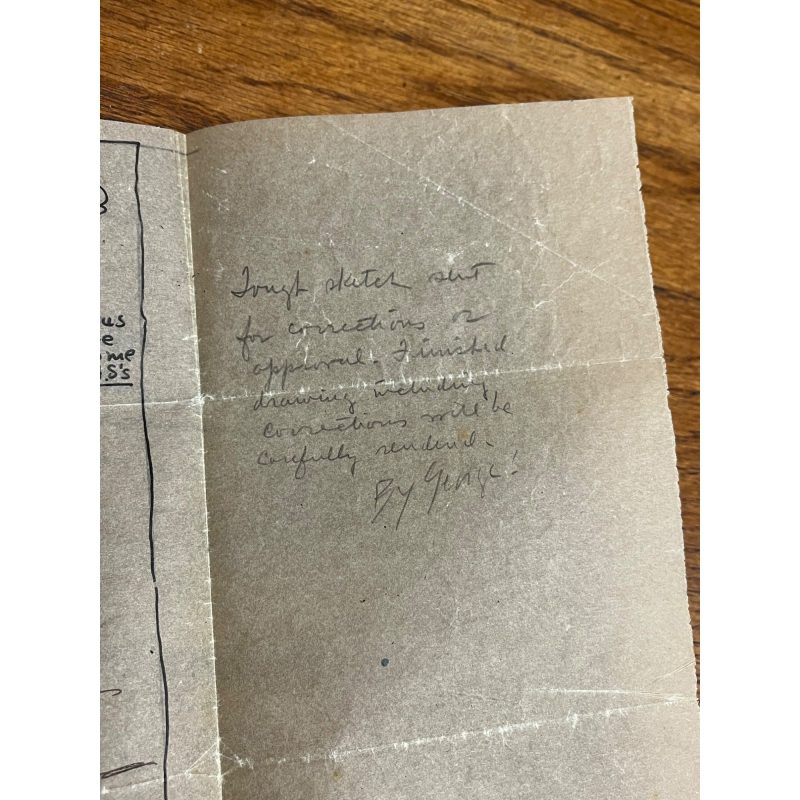 us
e
me
S's
Tough sketch sent
for corrections or
approval. Finished
drawing including
corrections will be
carefully rendered.
By George!